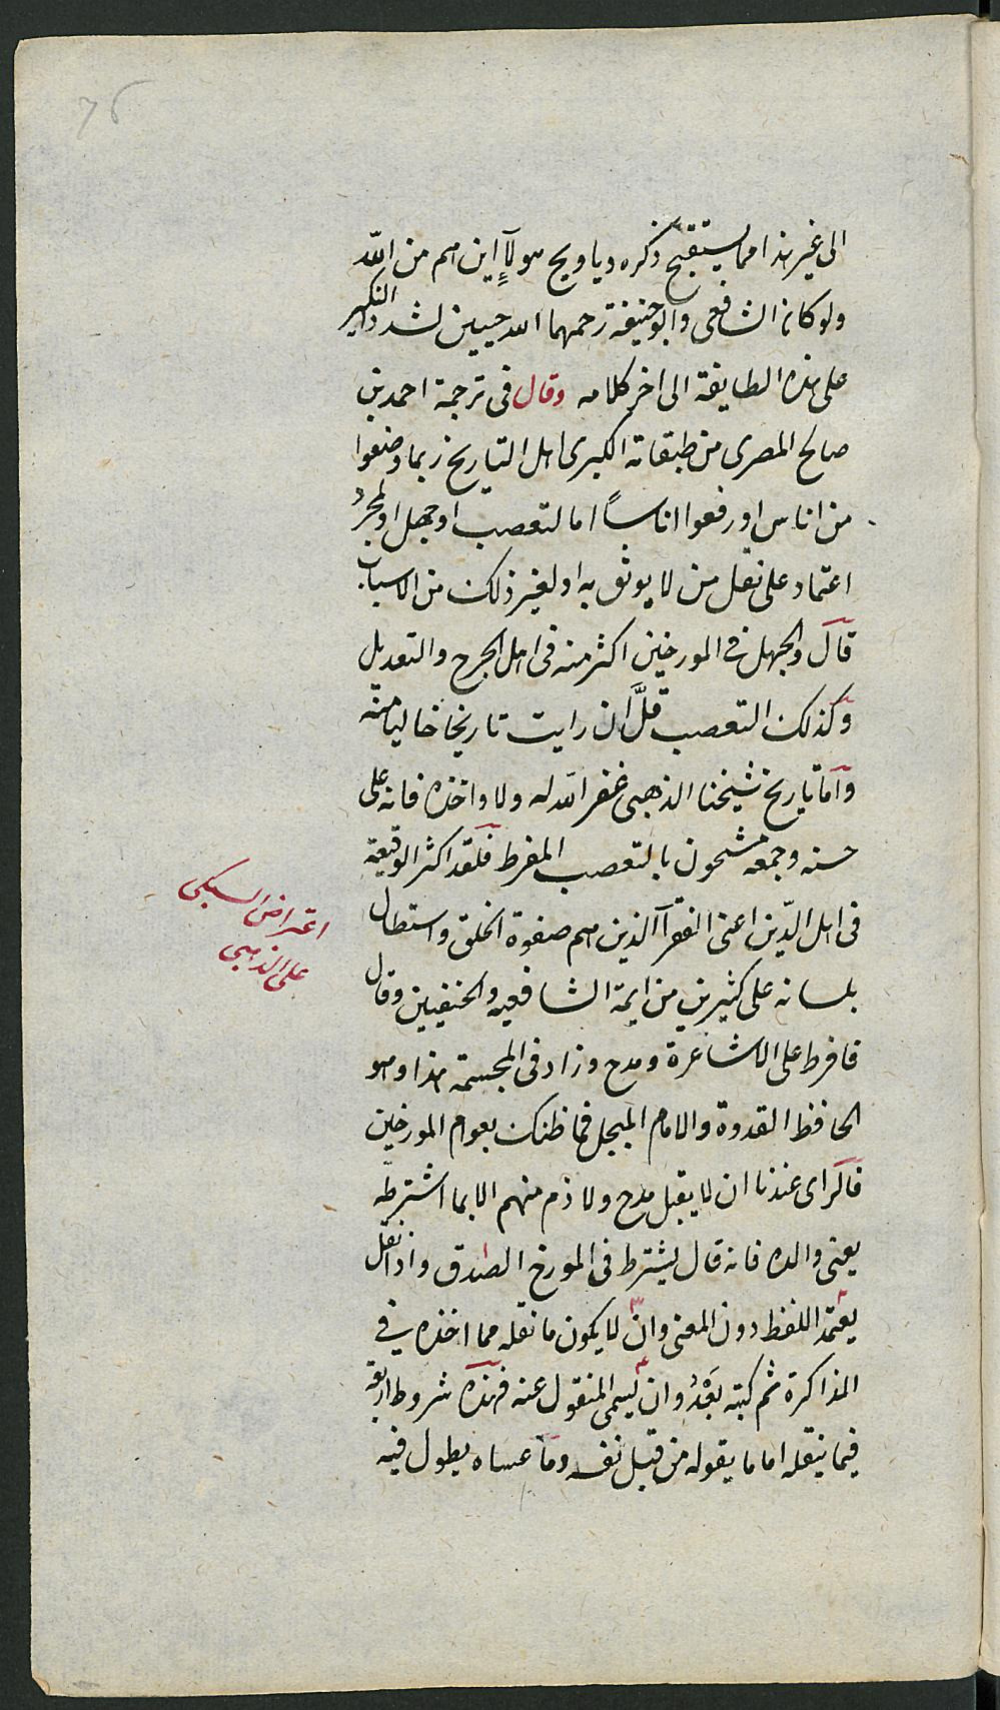 76
الى غير هذا مما يستقبح ذكره ويا ويح هولآءِ اين هم من الله
ولو كان الشافعى وابو حنيفة رحمهما الله حيين لشددا النكير
على هذه الطايفة الى اخر كلامه وقال فى ترجمة احمد بن
صالح المصرى من طبقاته الكبرى اهل التاريخ ربما وضعوا
من اناس او رفعوا اناساً اما لتعصب او جهل او لمجرد
اعتماد على نقل من لا يوثق به او لغير ذلك من الاسباب
قال والجهل فى المورخين اكثر منه فى اهل الجرح والتعديل
وكذلك التعصب قلَّ ان رايت تاريخا خاليا منه
واما تاريخ شيخنا الذهبى غفر الله له ولا واخذه فانه على
حسنه وجمعه مشحون بالتعصب المفرط فلقد اكثر الوقيعة
فى اهل الدّين اعنى الفقرآ الذين هم صفوة الخلق واستطال
بلسانه على كثيرين من ايمة الشافعيه والحنفيين وقال
فافرط على الاشاعرة ومدح وزاد فى المجسمة هذا وهو
الحافظ القدوة والامام المبجل فما ظنك بعوام المورخين
فالراى عندنا ان لا يقبل مدح ولا ذم منهم الا بما اشترطه
يعنى والده فانه قال يشترط فى المورخ الصدق واذا نقل
يعتمد اللفظ دون المعنى وان لا يكون ما نقله مما اخذه فى
المذاكرة ثم كتبه بَعْدُ وان يسمى المنقول عنه فهذه شروط اربعة
فيما ينقله اما ما يقوله من قبل نفسه وما عساه يطول فيه
اعتراض السبكى
على الذهبى